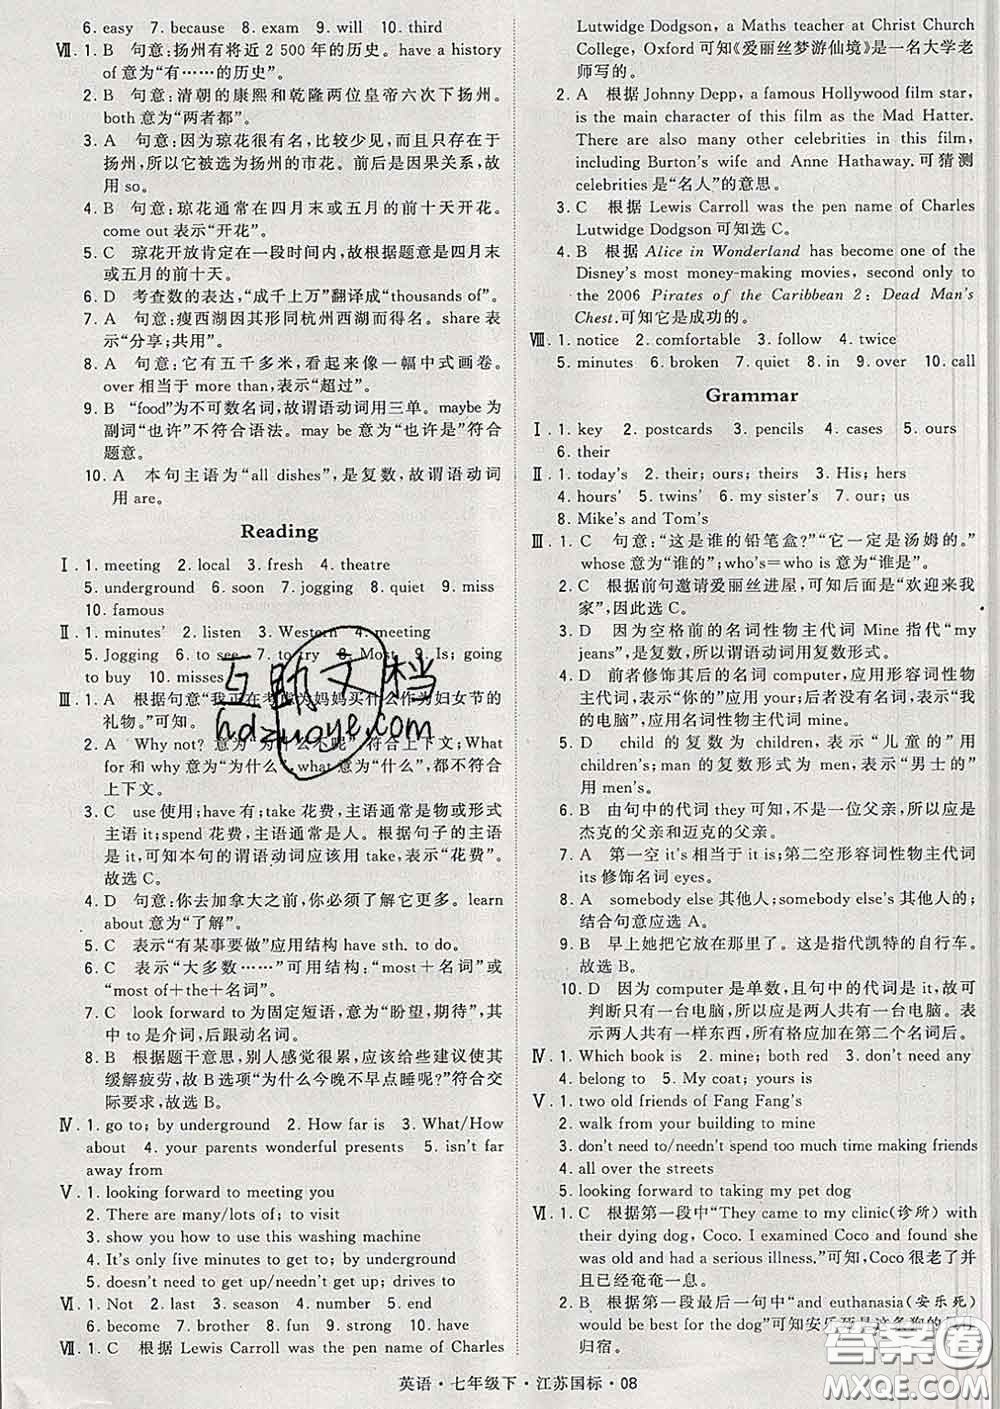 6. easy 7. because 8. exam 9. will 10. third
Ⅶ. 1. B 句意:扬州有将近2 500年的历史。have a history
of 意为“有……的历史”。
2. B 句意:清朝的康熙和乾隆两位皇帝六次下扬州。
both 意为“两者都”。
3. A 句意:因为琼花很有名,比较少见,而且只存在于
扬州,所以它被选为扬州的市花。前后是因果关系,故
用 so。
4. B 句意:琼花通常在四月末或五月的前十天开花。
come out 表示“开花”。
5. C 琼花开放肯定在一段时间内,故根据题意是四月末
或五月的前十天。
6. D 考查数的表达,“成千上万”翻译成“thousands of”。
7. A 句意:瘦西湖因其形同杭州西湖而得名。share 表
示“分享;共用”。
8. A 句意:它有五千多米,看起来像一幅中式画卷。
over 相当于 more than,表示“超过”。
9. B “food”为不可数名词,故谓语动词用三单。maybe 为
副词“也许”不符合语法。may be 意为“也许是”符合
题意。
10. A 本句主语为“all dishes”,是复数,故谓语动词
用 are。
Reading
Ⅰ. 1. meeting 2. local 3. fresh 4. theatre
5. underground 6. soon 7. jogging 8. quiet 9. miss
10. famous
Ⅱ. 1. minutes' 2. listen 3. Western 4. meeting
5. Jogging 6. to see 7. to try 8. Most 9. Is; going
to buy 10. misses
Ⅲ. 1. A 根据句意“我正在考虑为妈妈买什么作为妇女节的
礼物。”可知。
2. A Why not? 意为“为什么不呢”符合上下文;What
for 和 why 意为“为什么”,what 意为“什么”,都不符合
上下文。
3. C use 使用;have 有;take 花费,主语通常是物或形式
主语 it;spend 花费,主语通常是人。根据句子的主语
是 it,可知本句的谓语动词应该用 take,表示“花费”。
故选 C。
4. D 句意:你去加拿大之前,你必须了解它更多。learn
about 意为“了解”。
5. C 表示“有某事要做”应用结构 have sth. to do。
6. C 表示“大多数……”可用结构:“most+名词”或
“most of+the+名词”。
7. C look forward to 为固定短语,意为“盼望,期待”,其
中 to 是介词,后跟动名词。
8. B 根据题干意思,别人感觉很累,应该给些建议使其
缓解疲劳,故 B 选项“为什么今晚不早点睡呢?”符合交
际要求,故选 B。
Ⅳ. 1. go to; by underground 2. How far is 3. What/How
about 4. your parents wonderful presents 5. isn't far
away from
Ⅴ. 1. looking forward to meeting you
2. There are many/lots of; to visit
3. show you how to use this washing machine
4. It's only five minutes to get to; by underground
5. doesn't need to get up/needn't get up; drives to
Ⅵ. 1. Not 2. last 3. season 4. number 5. end
6. become 7. brother 8. fun 9. strong 10. have
Ⅶ. 1. C 根据 Lewis Carroll was the pen name of Charles
Lutwidge Dodgson, a Maths teacher at Christ Church
College, Oxford 可知《爱丽丝梦游仙境》是一名大学老
师写的。
2. A 根据 Johnny Depp, a famous Hollywood film star,
is the main character of this film as the Mad Hatter.
There are also many other celebrities in this film,
including Burton's wife and Anne Hathaway. 可猜测
celebrities 是“名人”的意思。
3. C 根据 Lewis Carroll was the pen name of Charles
Lutwidge Dodgson 可知选 C。
4. B 根据 Alice in Wonderland has become one of the
Disney's most money-making movies, second only to
the 2006 Pirates of the Caribbean 2: Dead Man's
Chest. 可知它是成功的。
Ⅷ. 1. notice 2. comfortable 3. follow 4. twice
5. minutes 6. broken 7. quiet 8. in 9. over 10. call
Grammar
Ⅰ. 1. key 2. postcards 3. pencils 4. cases 5. ours
6. their
Ⅱ. 1. today's 2. their; ours; theirs 3. His; hers
4. hours' 5. twins' 6. my sister's 7. our; us
8. Mike's and Tom's
Ⅲ. 1. C 句意:“这是谁的铅笔盒?”“它一定是汤姆的。”
whose 意为“谁的”;who's=who is 意为“谁是”。
2. C 根据前句邀请爱丽丝进屋,可知后面是“欢迎来我
家”,因此选 C。
3. D 因为空格前的名词性物主代词 Mine 指代“my
jeans”,所以谓语动词用复数形式。
4. D 前者修饰其后的名词 computer,应用形容词性物
主代词,表示“你的”应用 your;后者没有名词,表示“我
的电脑”,应用名词性物主代词 mine。
5. D child 的复数为 children,表示“儿童的”用
children's;man 的复数形式为 men,表示“男士的”
用 men's。
6. B 由句中的代词 they 可知,不是一位父亲,所以应是
杰克的父亲和迈克的父亲。
7. A 第一空 it's 相当于 it is;第二空形容词性物主代词
its 修饰名词 eyes。
8. A somebody else 其他人;somebody else's 其他人的;
结合句意应选 A。
9. B 早上她把它放在那里了。这是指代凯特的自行车。
故选 B。
10. D 因为 computer 是单数,且句中的代词是 it,故可
判断只有一台电脑,所以应是两人共有一台电脑。表
示两人共有一样东西,所有格应加在第二个名词后。
Ⅳ. 1. Which book is 2. mine; both red 3. don't need any
4. belong to 5. My coat; yours is
Ⅴ. 1. two old friends of Fang Fang's
2. walk from your building to mine
3. don't need to/needn't spend too much time making friends
4. all over the streets
5. looking forward to taking my pet dog
Ⅵ. 1. C 根据第一段中“They came to my clinic(诊所) with
their dying dog, Coco. I examined Coco and found she
was old and had a serious illness.”可知,Coco 很老了并
且已经奄奄一息。
2. B 根据第一段最后一句中“and euthanasia(安乐死)
would be best for the dog”可知安乐死是这条狗的最好
归宿。
英语·七年级下·江苏国标·08
互助文档
hdzuoye.com
答案圈
MXQE.COM